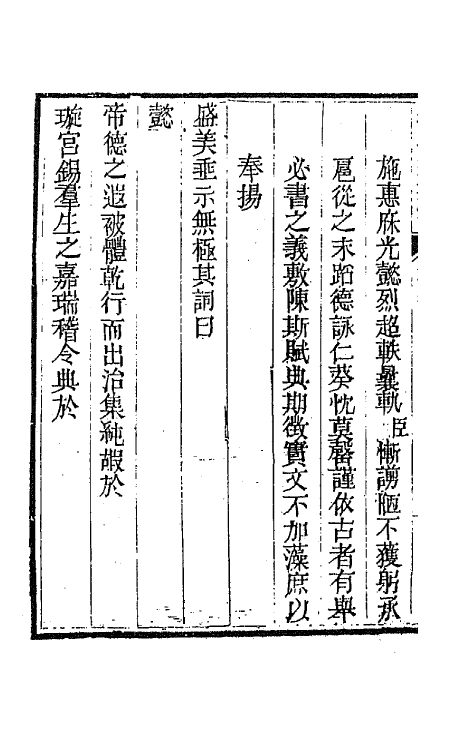 施惠庥光懿烈超軼曩軌臣慚謭陋不獲躬承
扈從之末蹈德詠仁葵忱莫罄謹依古者有舉
必書之義敷陳斯賦典期徵實文不加藻庶以
奉揚
盛美垂示無極其詞曰
懿
帝德之遐被體乾行而出治集純嘏於
璇宮錫羣生之嘉瑞稽令典於